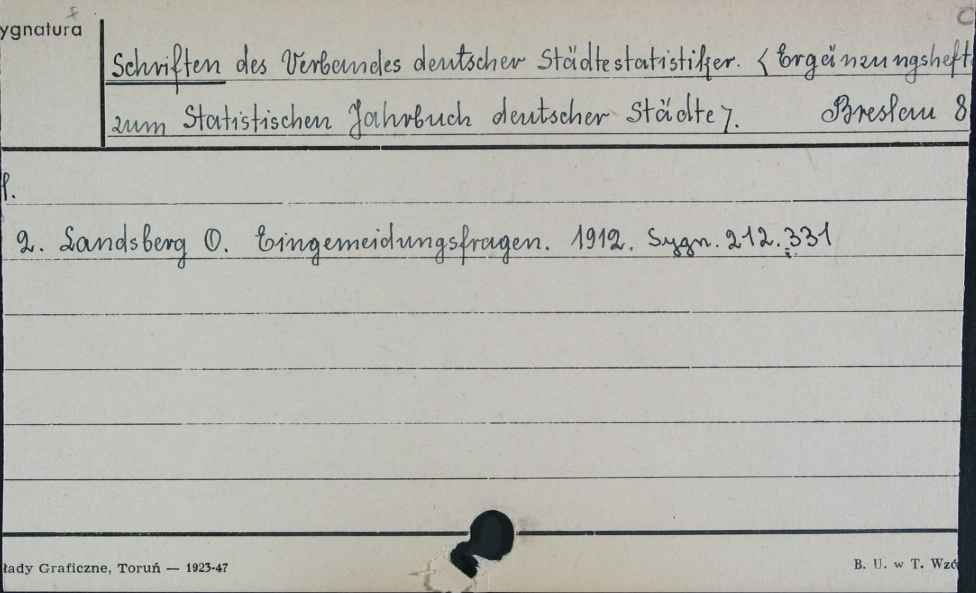 ygnatura
Schriften des Verbandes deutscher Städtestatistiker. < Ergänzungsheft
zum Statistischen Jahrbuch deutscher Städte >. Breslau 8
2. Landsberg O. Eingemeidungsfragen. 1912. Sygn. 212.331
łady Graficzne, Toruń — 1923-47
B. U. w T. Wzó